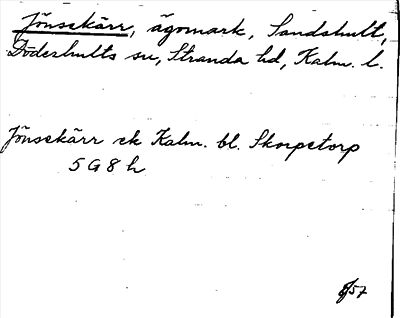 Jönsekärr, ägomark, Sandshult,
Döderhults sn, Stranda hd, Kalm. l.
Jönsekärr ek Kalm. bl. Skorpetorp
5 G 8 h